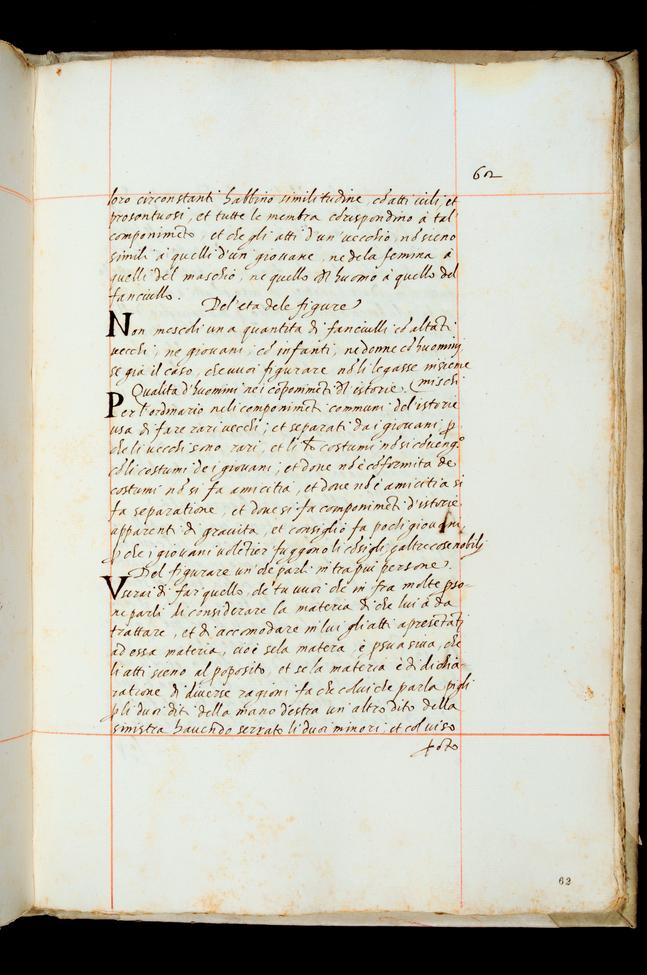 62
loro circonstanti habbino similitudine, cō atti uili, et
prosontuosi, et tutte le membra corispondino à tal
componimēto, et che gli atti d'un uecchio, nō sieno
simili à quelli d'un giouane, ne dela femina à
quelli del maschio, ne quello dl huomo à quello del
fanciullo.
Del' eta dele figure
Non mescoli una quantita di fanciulli cō altāti
uecchi, ne giouani, cō infanti, ne donne cō huomini
se già il caso, che uuoi figurare nō li legasse insieme
mischi
Qualita d'huomini nei cōponimēti dl istorie
Per l'ordinario neli componimēti communi del' istorie
usa di fare rari uecchi; et separati da i giouani p
che li uecchi sono rari, et li lō costumi nō si cōuengō
cō li costumi de i giouani; et doue nō è cōformita de
costumi nō si fa amicitia, et doue nō è amicitia si
fa separatione, et doue si fa componimēti d'istorie
apparenti di grauita, et consiglio fa pochi giouani,
p che i giouani uolētier fuggono li cōsigli, e altre cose nobili
Del figurare un' che parli infra piu persone
Vsarai di far quello, che tu uuoi che in fra molte pso-
ne parli di considerare la materia di che lui à da
trattare, et di accomodare in lui gli atti apertenēti
ad essa materia, cioè se la matera è psuasiua, che
li atti sieno al poposito, et se la materia è di dichia
ratione di diuerse ragioni fa che colui che parla pigli
p li duoi diti della mano destra un' altro dito della
sinistra hauendo serrato li duoi minori, et col uiso
62